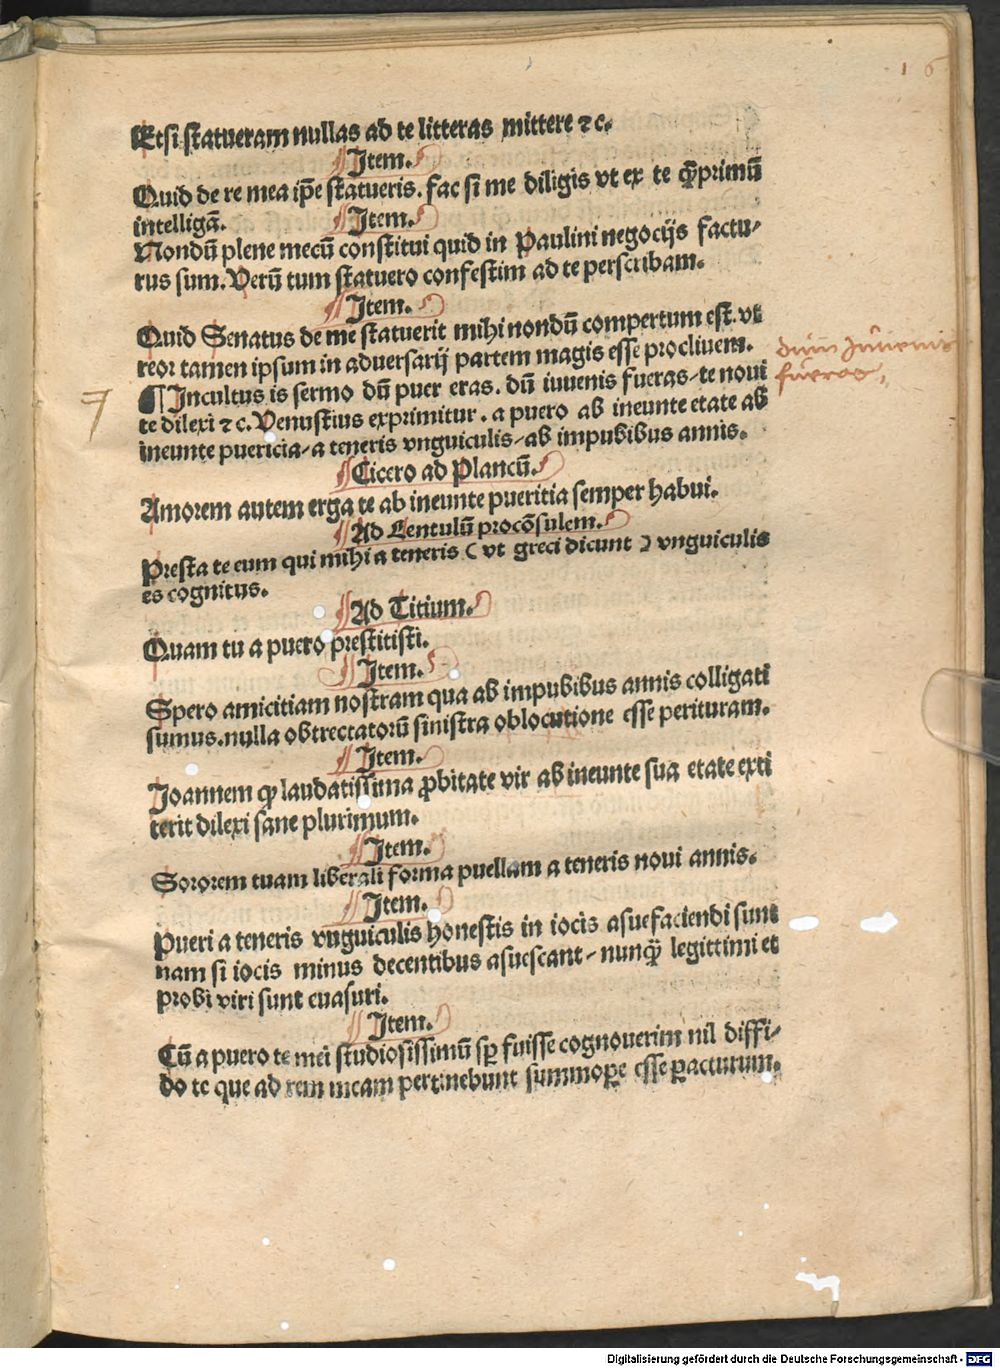 16
Etsi statueram nullas ad te litteras mittere ⁊ c.
¶ Item.
Quid de re mea ip̄e statueris. fac si me diligis vt ex te q̄ꝫprimū
intelligā. ¶ Item.
Nondū plene mecū constitui quid in Paulini negocijs factu⸗
rus sum. Verū tum statuero confestim ad te perscribam.
¶ Item.
Quid Senatus de me statuerit mihi nondū compertum est. vt
reor tamen ipsum in aduersarij partem magis esse procliuem.
dum Juuenis
fueras,
7
¶ Incultus is sermo dū puer eras. dū iuuenis fueras⸗te noui
te dilexi ⁊ c. Venustius exprimitur. a puero ab ineunte etate ab
ineunte puericia⸗a teneris vnguiculis⸗ab impubibus annis.
¶ Cicero ad Plancū.
Amorem autem erga te ab ineunte pueritia semper habui.
¶ Ad Lentulū procōsulem.
Presta te eum qui mihi a teneris ( vt greci dicunt ) vnguiculis
es cognitus.
¶ Ad Titium.
Quam tu a puero prestitisti.
¶ Item.
Spero amicitiam nostram qua ab impubibus annis colligati
sumus.nulla obtrectatorū sinistra oblocutione esse perituram.
¶ Item.
Joannem qꝫ laudatissima ꝓbitate vir ab ineunte sua etate exti
terit dilexi sane plurimum.
¶ Item.
Sororem tuam liberali forma puellam a teneris noui annis.
¶ Item.
Pueri a teneris vnguiculis honestis in iocis asuefaciendi sunt
nam si iocis minus decentibus asuescant⸗nunqꝫ̄ legittimi et
probi viri sunt euasuri.
¶ Item.
Cū a puero te mei studiosissimū sꝑ fuisse cognouerim nil diffi⸗
do te que ad rem meam pertinebunt summoꝑe esse ꝑacturum.
Digitalisierung gefördert durch die Deutsche Forschungsgemeinschaft - DFG